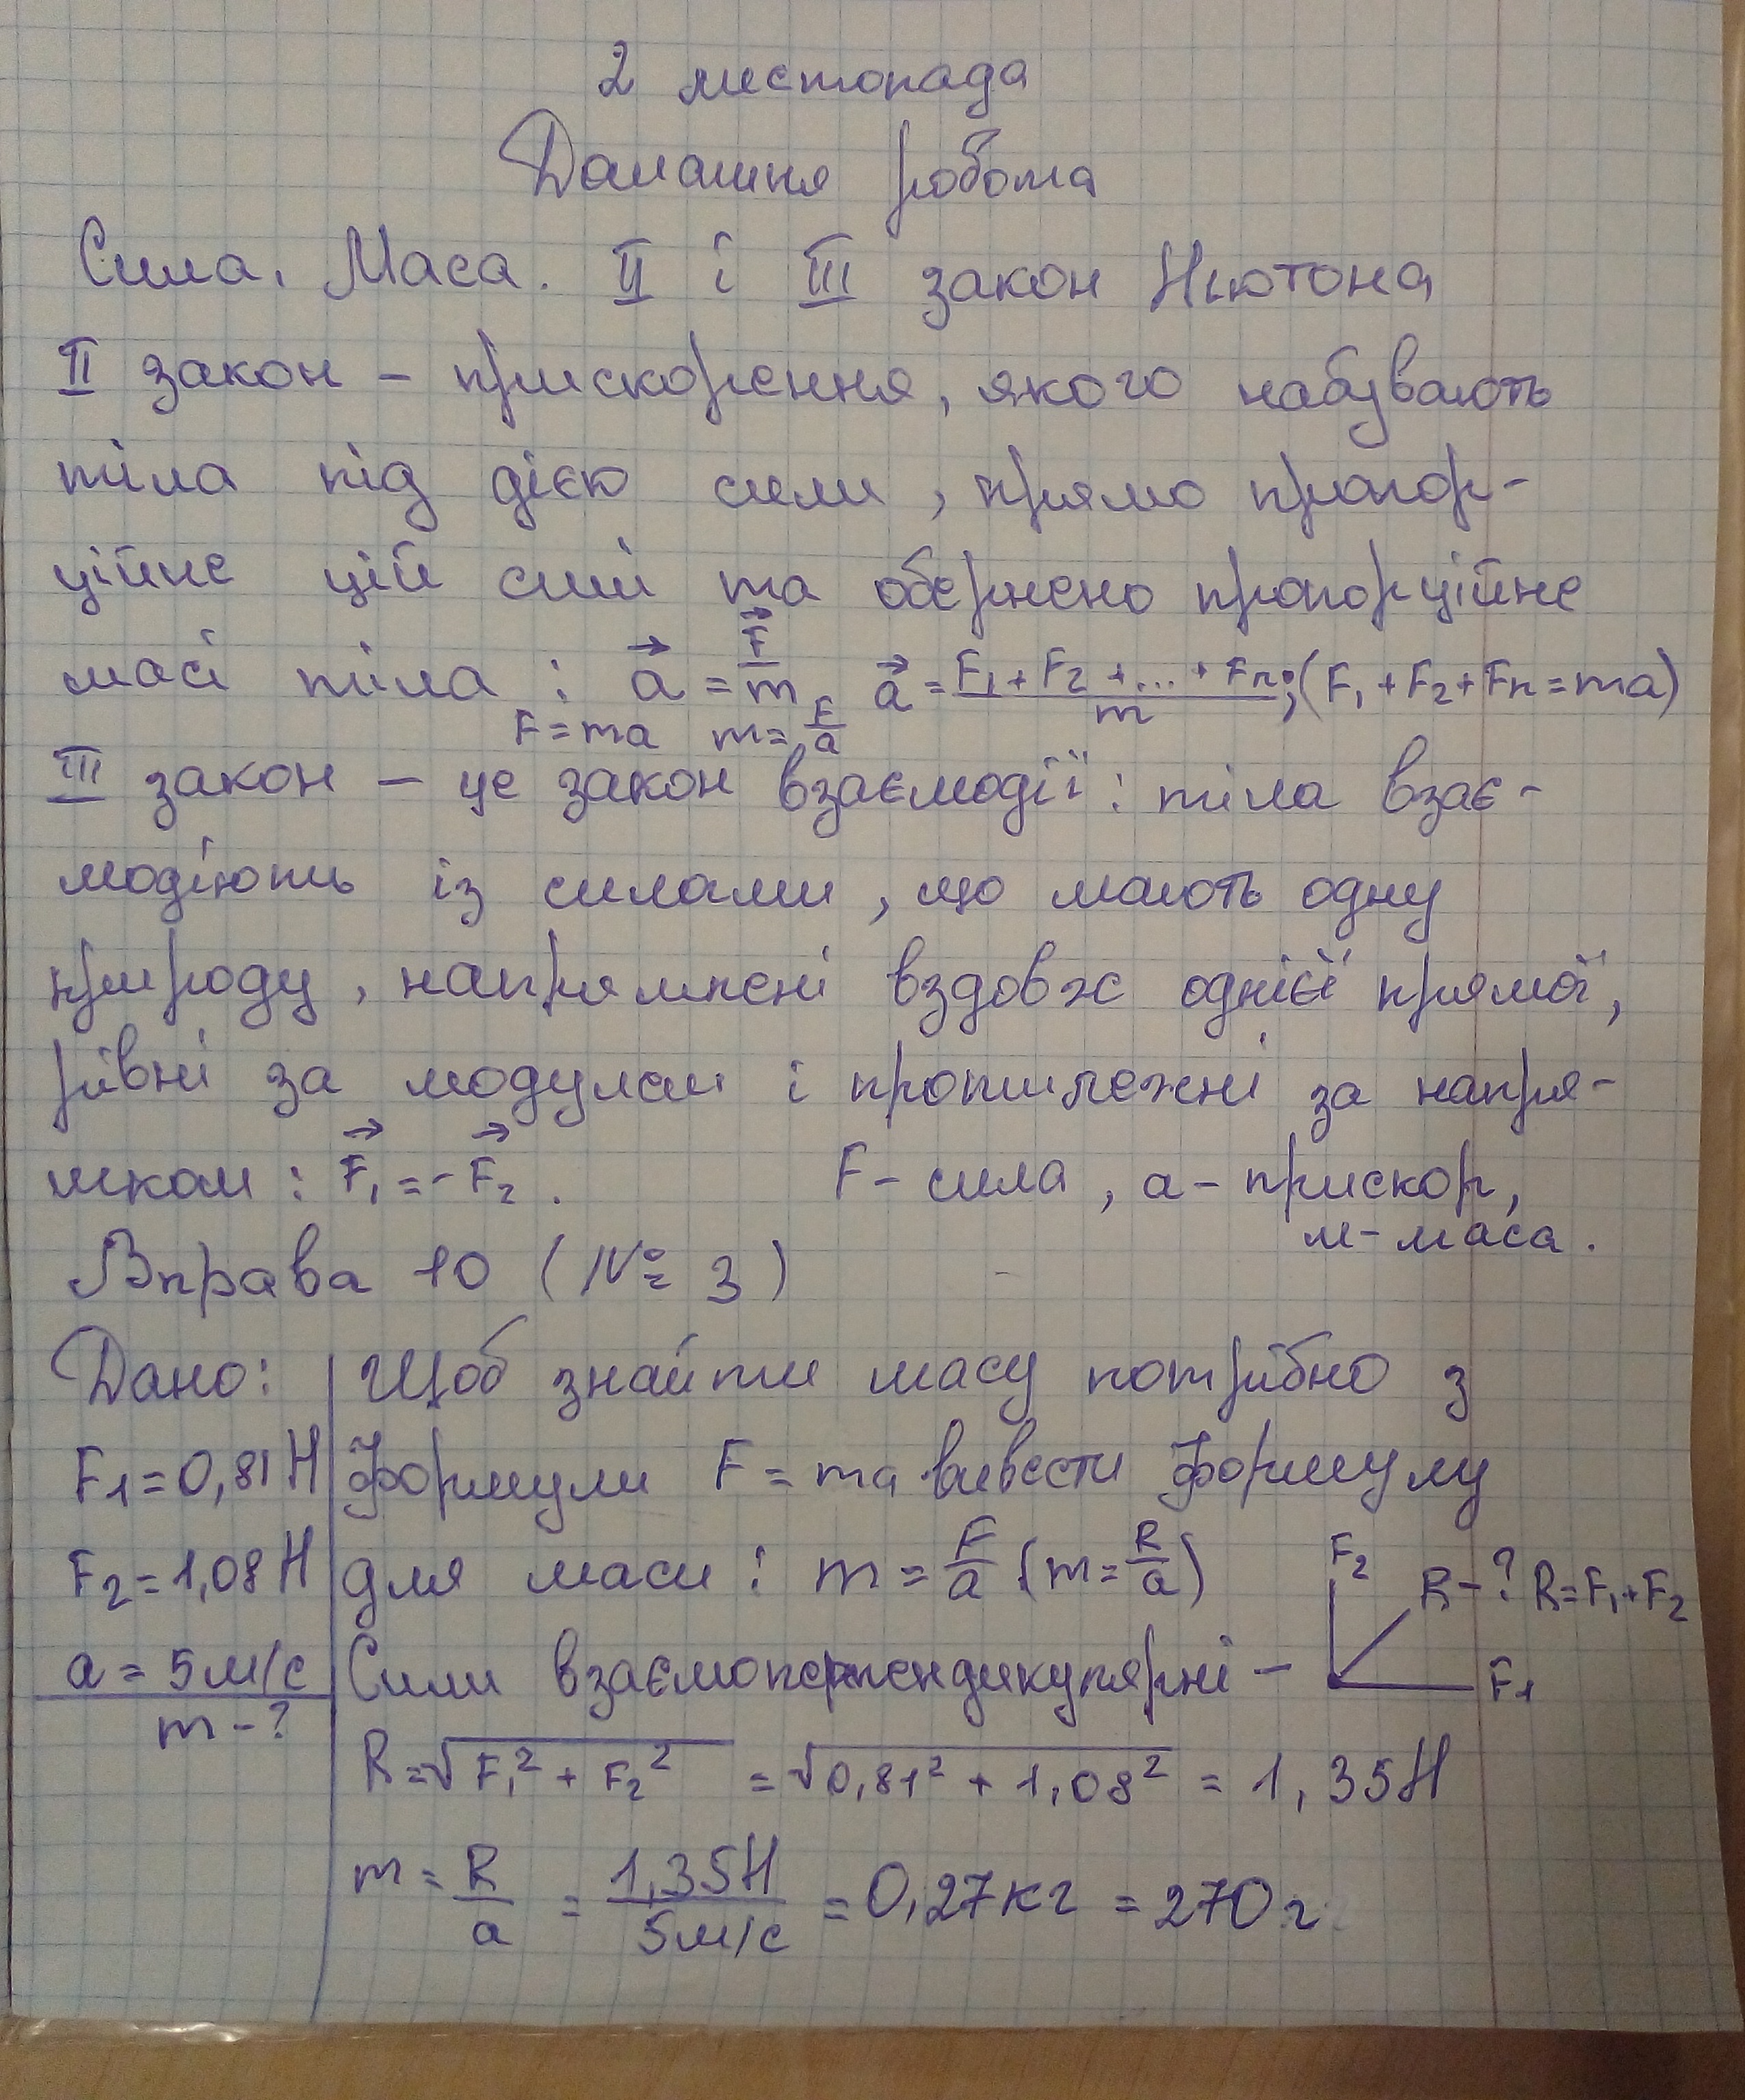 2 листопада
Домашня робота
Сила. Маса. II і III закон Ньютона
II закон – прискорення, якого набувають
тіла під дією сили, прямо пропор-
ційне цій силі та обернено пропорційне
масі тіла : a⃗ = F⃗/m a⃗ = F₁ + F₂ + ... + Fn/m ; (F₁ + F₂ + Fn = ma)
F = ma m = F/a
III закон – це закон взаємодії : тіла взає-
модіють із силами, що мають одну
природу, напрямлені вздовж однієї прямої,
рівні за модулем і протилежні за напря-
мком : F⃗₁ = - F⃗₂ . F – сила, a – прискор,
м – маса.
Вправа 10 (№ 3)
Дано: Щоб знайти масу потрібно з
F1 = 0,81 Н формули F = ma вивести формулу
F2 = 1,08 Н для маси : m = F/a (m = R/a) F2 R - ? R = F₁ + F2
a = 5 м/с Сили взаємоперпендикулярні – F1
m - ?
R = √F₁² + F₂² = √0,81² + 1,08² = 1,35 Н
m = R/a = 1,35 Н/5 м/с = 0,27 кг = 270 г